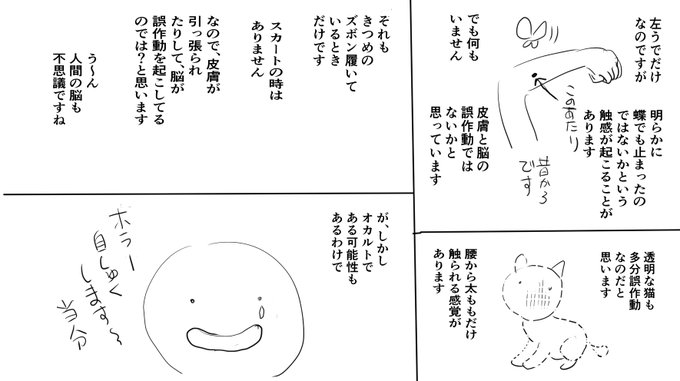 左うでだけ
なのですが
でも何も
いません
このあたり
明らかに
蝶でも止まったの
ではないかという
触感が起こることが
あります
昔から
です
皮膚と脳の
誤作動では
ないかと
思っています
透明な猫も
多分誤作動
なのだと
思います
腰から太ももだけ
触られる感覚が
あります
それも
きつめの
ズボン履いて
いるとき
だけです
スカートの時は
ありません
なので、皮膚が
引っ張られ
たりして、脳が
誤作動を起こしてる
のでは?と思います
う〜ん
人間の脳も
不思議ですね
が、しかし
オカルトで
ある可能性も
あるわけで
ホラー
自しゅく
します〜
当分